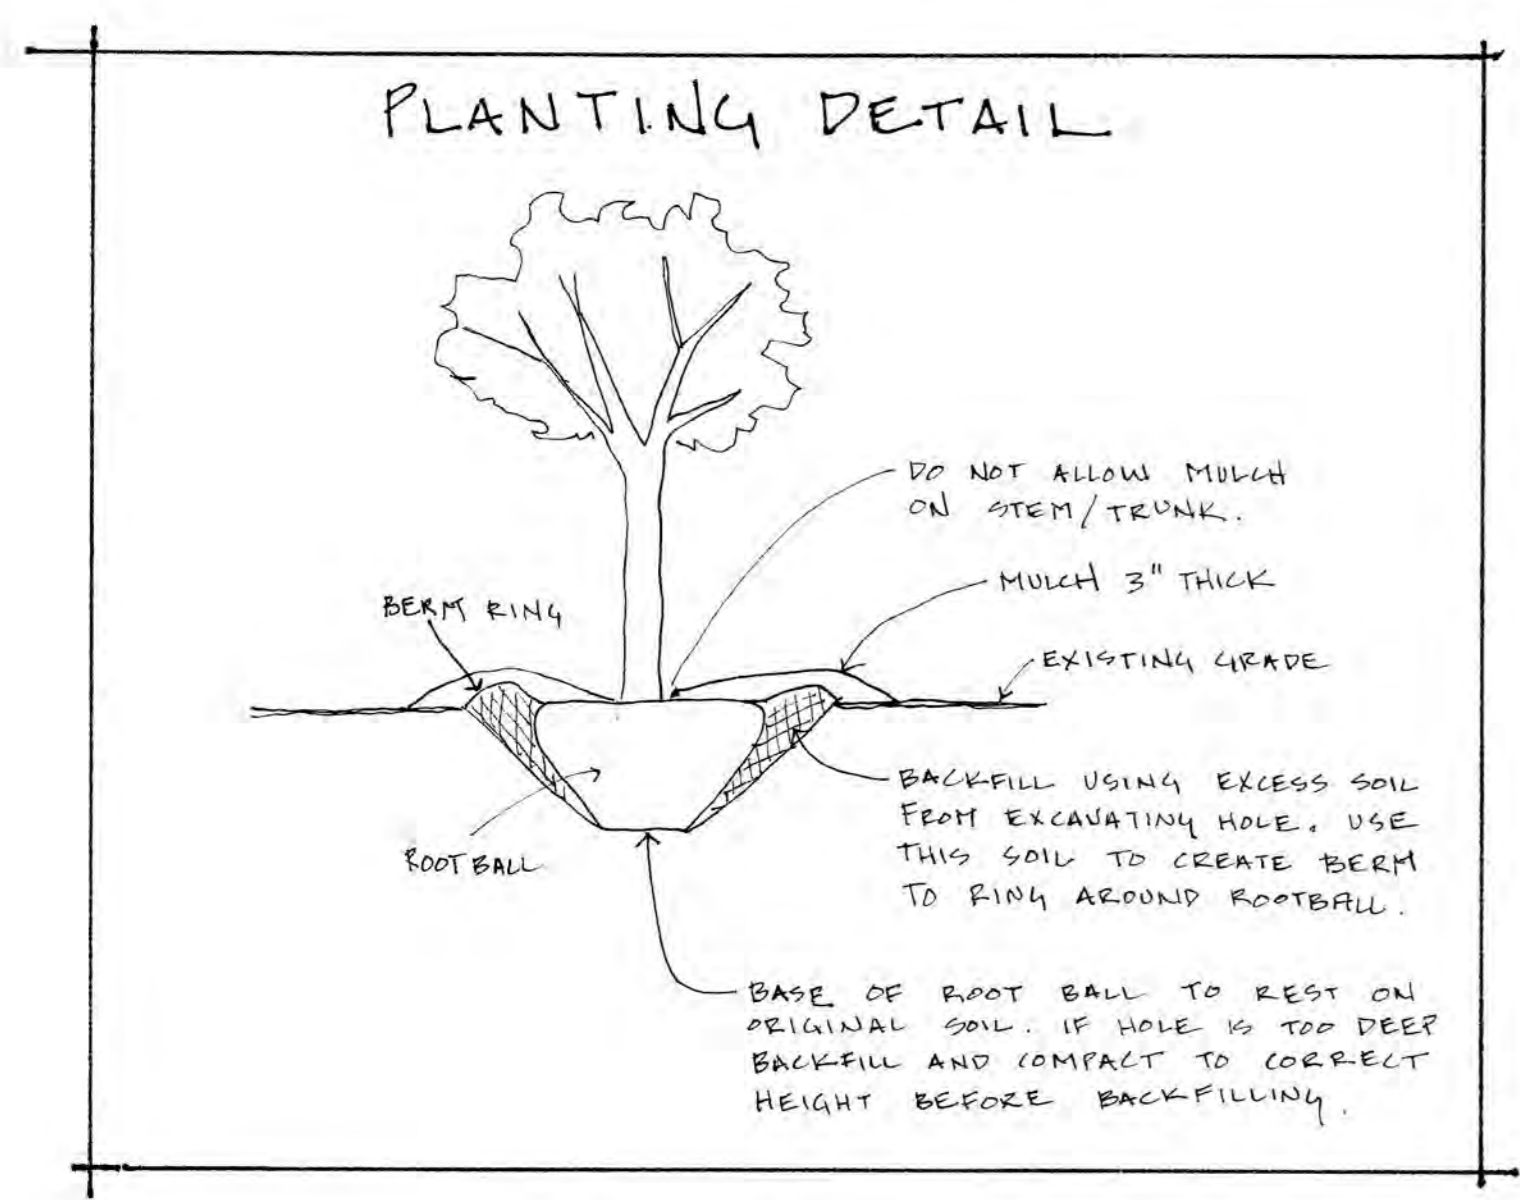 PLANTING DETAIL
DO NOT ALLOW MULCH
ON STEM/TRUNK.
MULCH 3" THICK
BERM RING
EXISTING GRADE
BACKFILL USING EXCESS SOIL
FROM EXCAVATING HOLE. USE
THIS SOIL TO CREATE BERM
TO RING AROUND ROOTBALL.
ROOT BALL
BASE OF ROOT BALL TO REST ON
ORIGINAL SOIL. IF HOLE IS TOO DEEP
BACKFILL AND COMPACT TO CORRECT
HEIGHT BEFORE BACKFILLING.